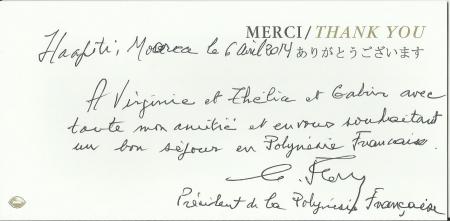 MERCI / THANK YOU
Haapiti, Moorea le 6 avril 2014 ありがとうございます
A Virginie et Thélia et Gabin avec
toute mon amitié et en vous souhaitant
un bon séjour en Polynésie Française.
Président de la Polynésie Française